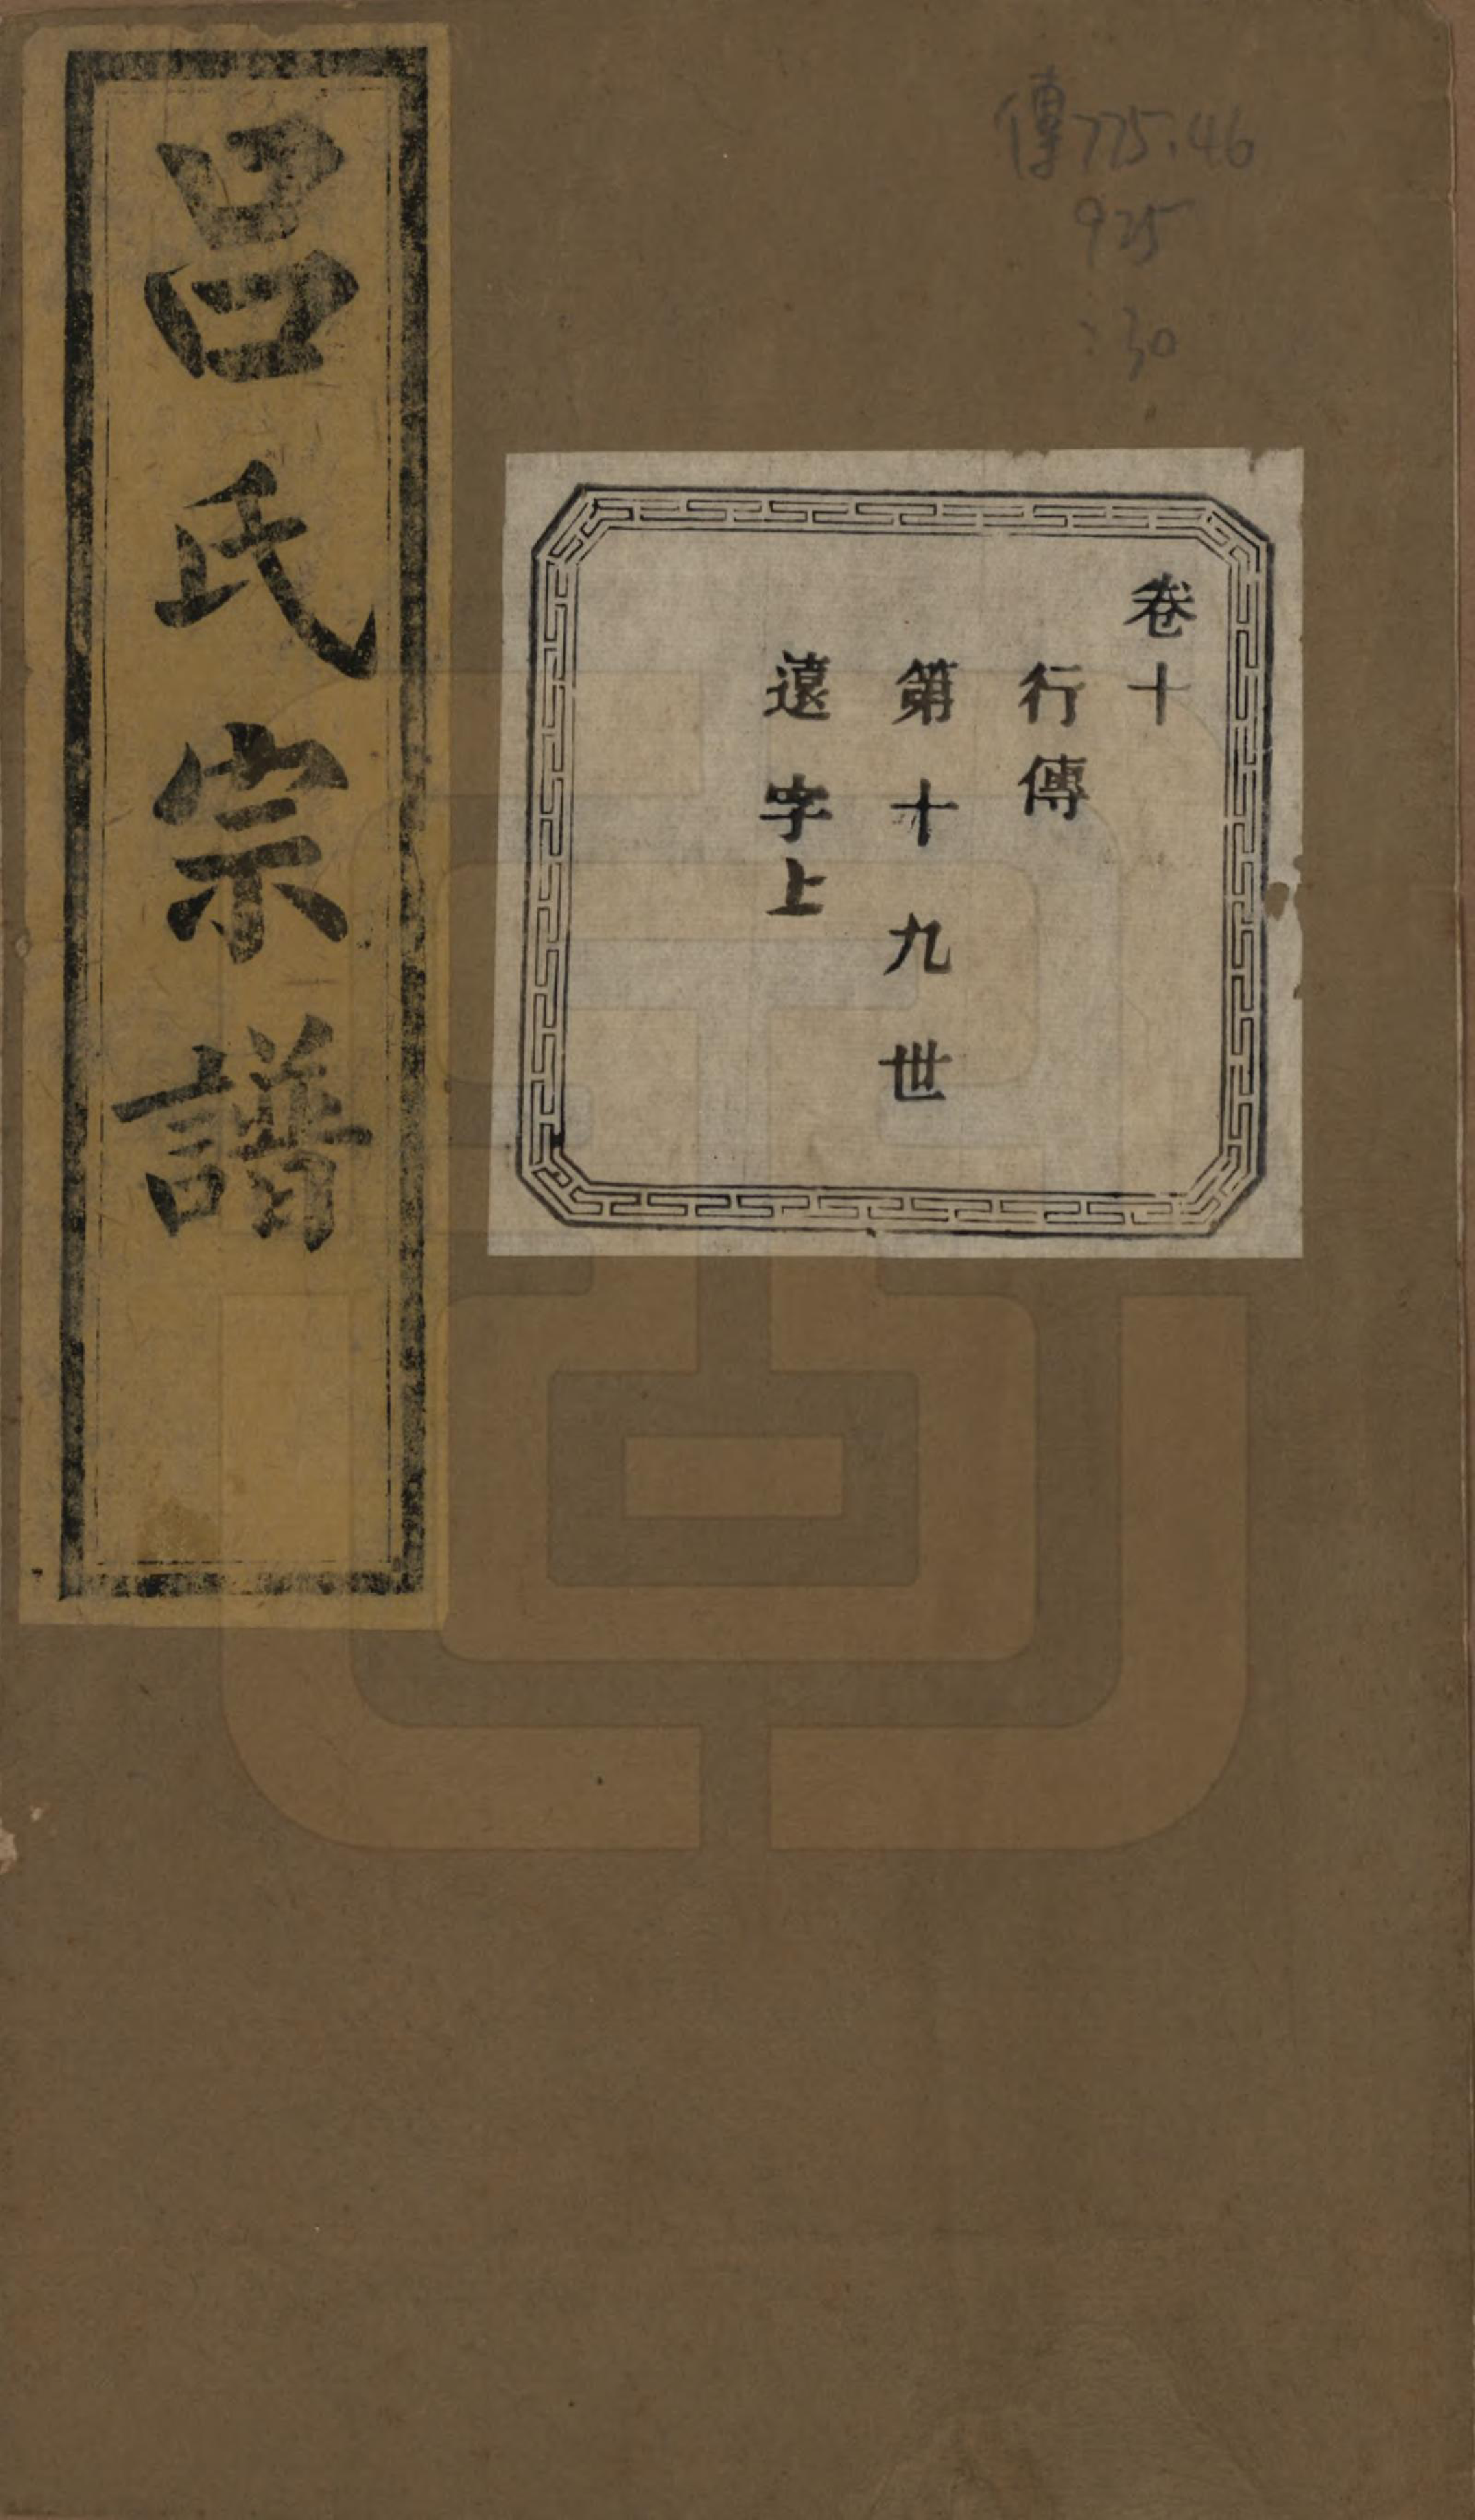 傳775.46
925
:30
卷十
行傳
第十九世
遠字上
吕氏宗譜